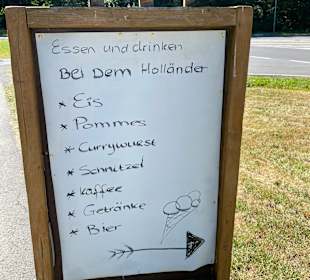 Essen und drinken
Bei Dem Holländer
* Eis
* Pommes
* Currywurst
* Schnitzel
* Kaffee
* Getränke
* Bier